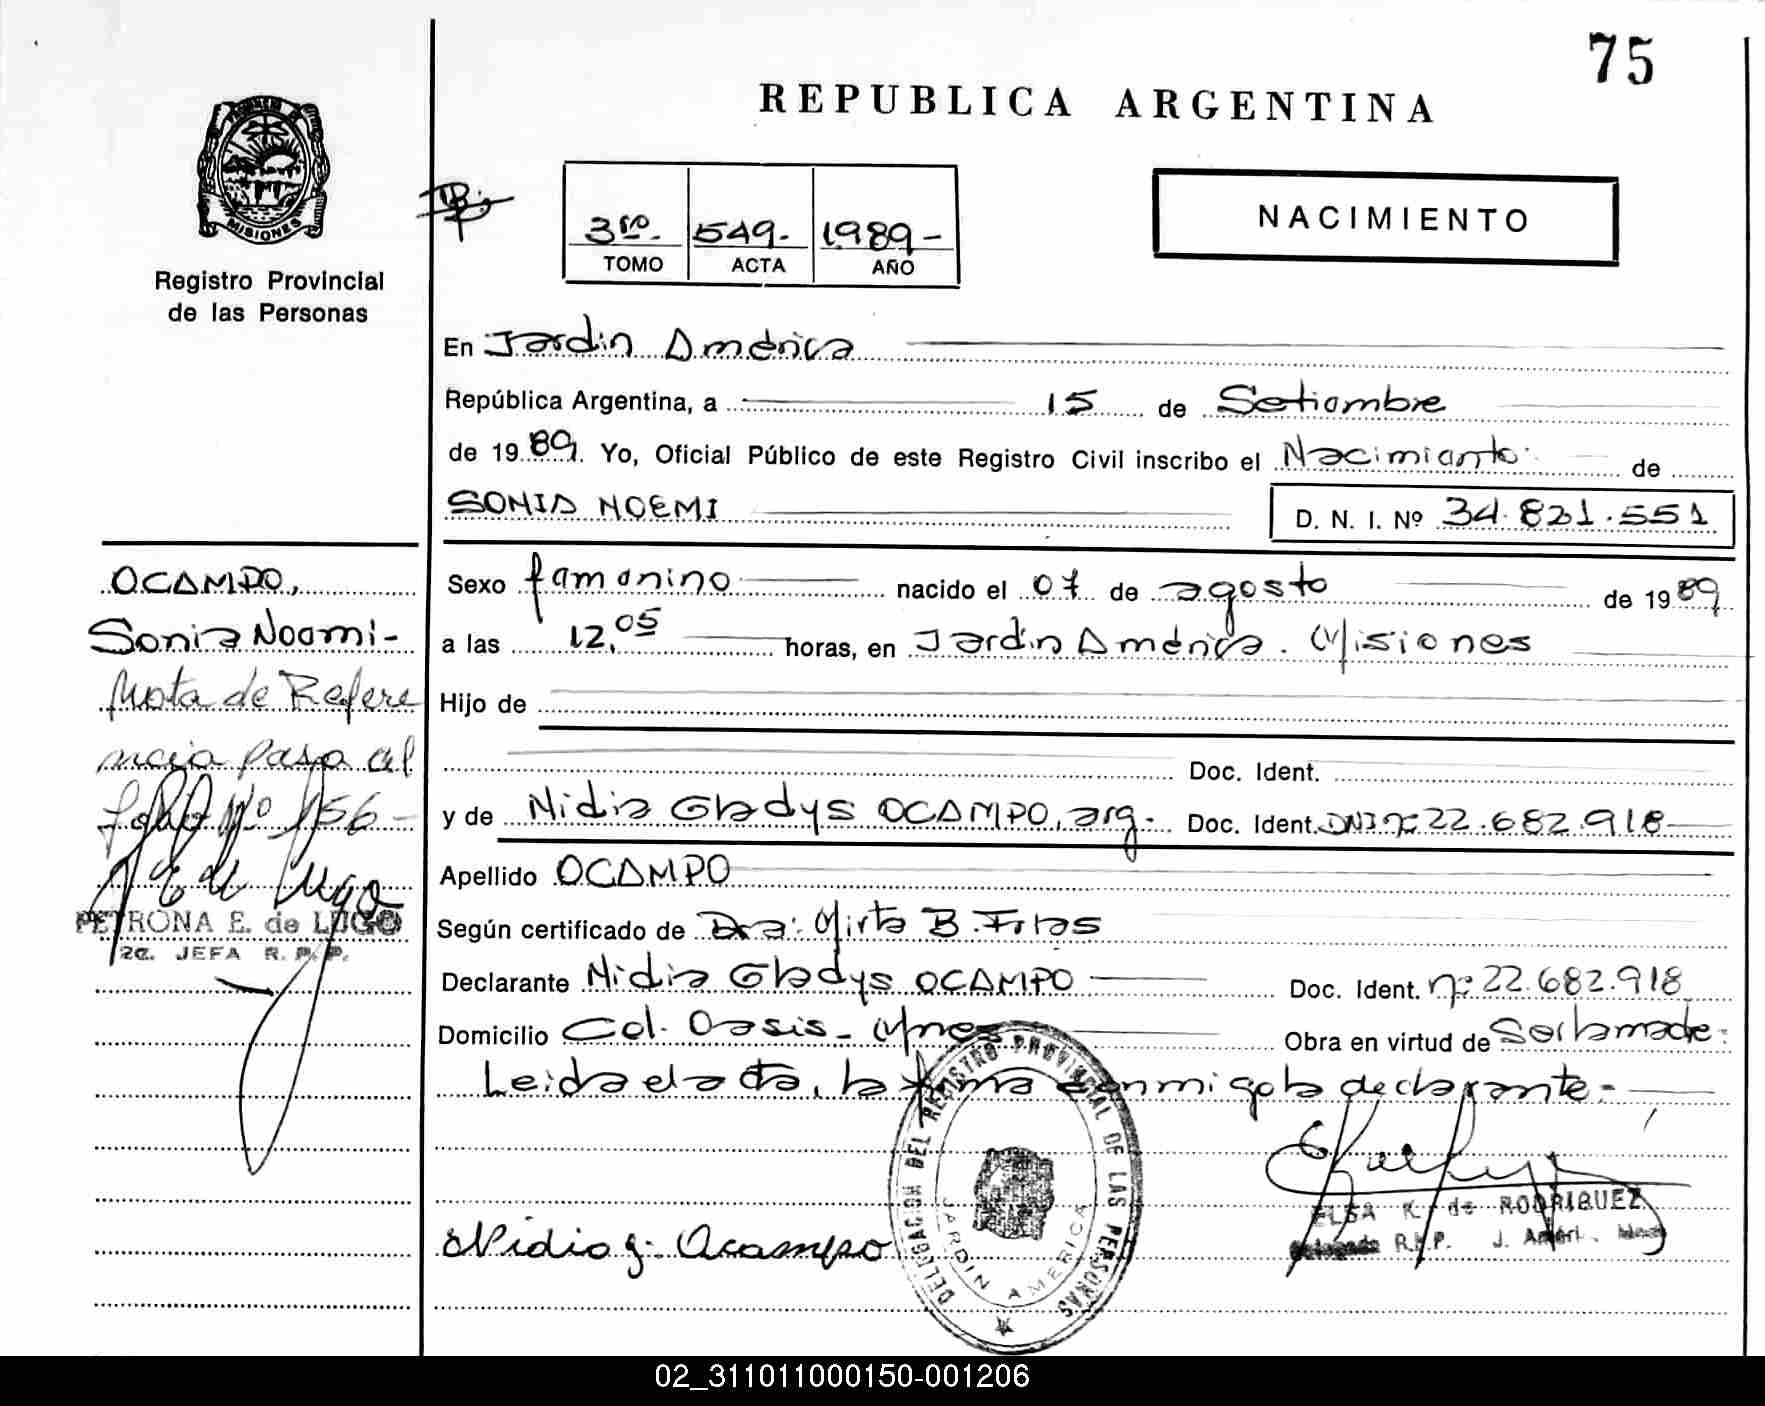 75
REPUBLICA ARGENTINA
MISIONES
Registro Provincial
de las Personas
3ro. 549.- 1989-
TOMO ACTA AÑO
NACIMIENTO
En Jardín América
República Argentina, a 15 de Setiembre
de 1989. Yo, Oficial Público de este Registro Civil inscribo el Nacimiento. de
SONIA NOEMI D. N. I. Nº 34.821.551
OCAMPO,
Sonia Noemi-
Nota de Refere
ncia pasa al
folio Nº 156-
PETRONA E. de LUGO
2a. JEFA R. P. P.
Sexo femenino nacido el 07 de agosto de 1989
a las 12,05 horas, en Jardín América. Misiones
Hijo de
Doc. Ident.
y de Nidia Gladys OCAMPO, arg.- Doc. Ident. DNI nº 22.682.918
Apellido OCAMPO
Según certificado de Dra: Mirta B.
Declarante Nidia Gladys OCAMPO Doc. Ident. nº 22.682.918
Domicilio Col. Oasis- Mnes Obra en virtud de Ser la madre.
Leida el acta, la firma conmigo la declarante.-
Nidia G. Ocampo
DELEGACION DEL REGISTRO PROVINCIAL DE LAS PERSONAS
JARDIN AMERICA
ELSA K. de RODRIGUEZ
Delegada R.P.P. J. Améri.
02_311011000150-001206